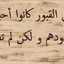 القبور كانوا أح
ودهم و لكن لم تف